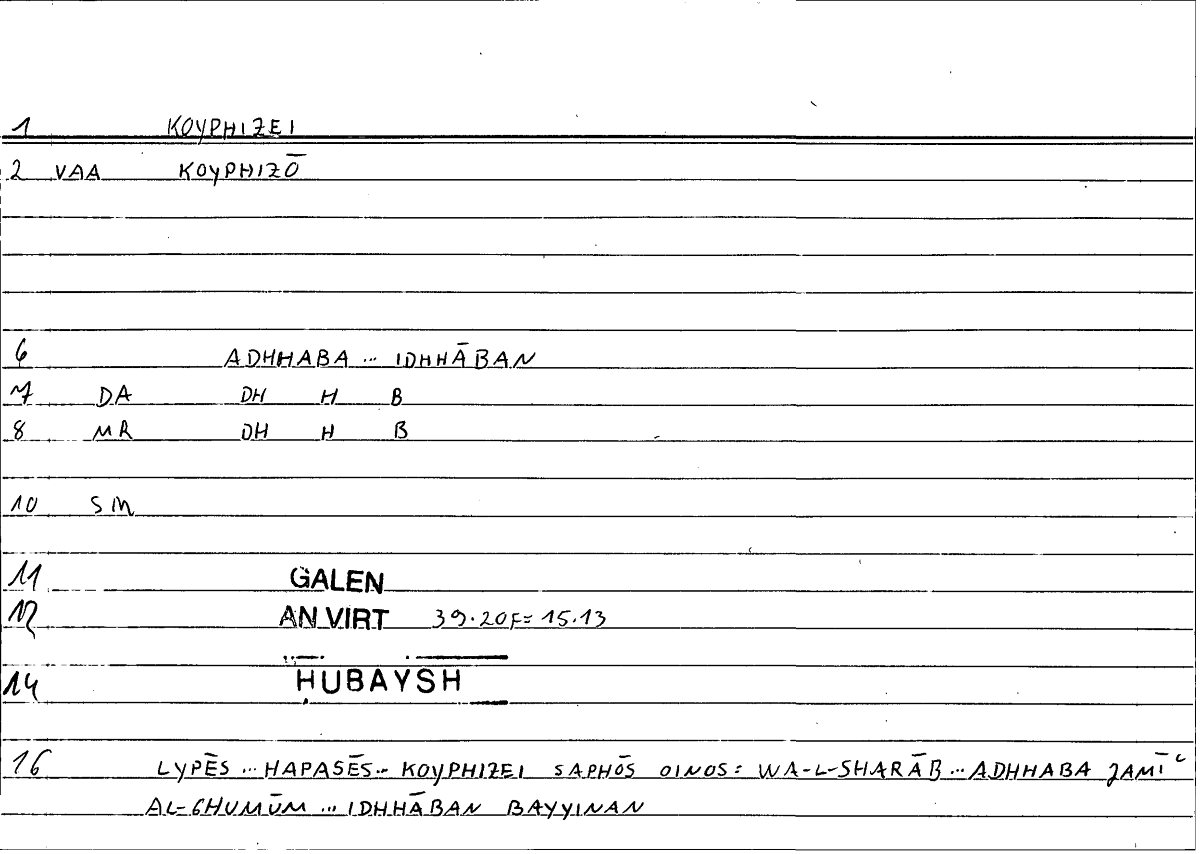 1 KOYPHIZEI
2 VAA KOYPHIZŌ
6 ADHHABA ... IDHHĀBAN
7 DA DH H B
8 MR DH H B
10 SM
11 GALEN
12 AN VIRT 39.20F=15.13
14 ḤUBAYSH
16 LYPĒS ... HAPASĒS... KOYPHIZEI SAPHŌS OINOS: WA-L-SHARĀB ... ADHHABA JAMĪʿ
AL-GHUMŪM ... IDHHĀBAN BAYYINAN